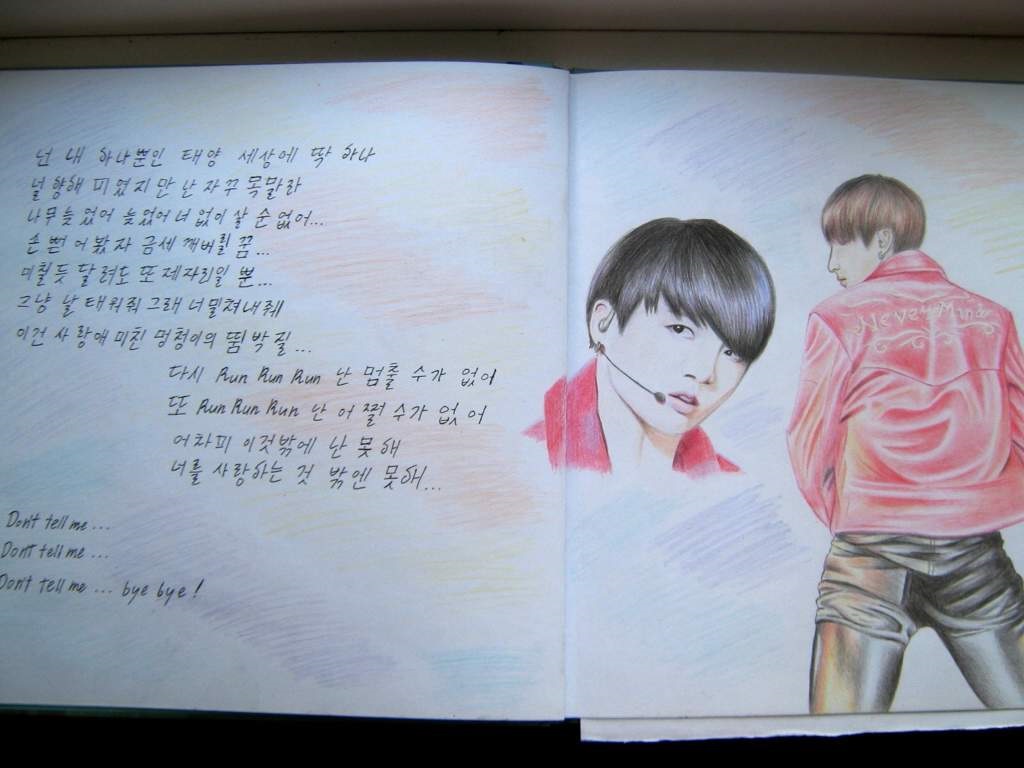 넌 내 하나뿐인 태양 세상에 딱 하나
널 향해 피었지만 난 자꾸 목말라
너무 늦었어 늦었어 너 없이 살 순 없어...
손 뻗어봤자 금세 깨버릴 꿈...
미칠듯 달려도 또 제자리일 뿐...
그냥 날 태워줘 그래 더 밀쳐내줘
이건 사랑에 미친 멍청이의 뜀박질...
다시 Run Run Run 난 멈출 수가 없어
또 Run Run Run 난 어쩔 수가 없어
어차피 이것밖에 난 못해
너를 사랑하는 것 밖엔 못해...
Don't tell me...
Don't tell me...
Don't tell me... bye bye!
Never Mind